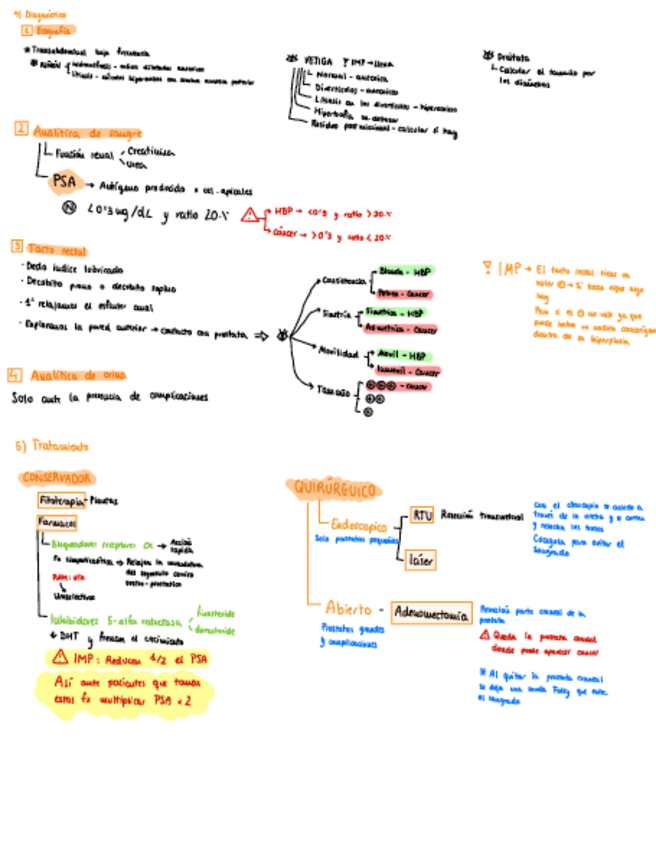 4) Diagnóstico
1 Ecografía
* Transabdominal baja frecuencia
* Riñón
hidronefrosis - cálices dilatados
litiasis - hiperecoica con sombra acústica posterior
* VEJIGA IMP → llena
Normal - anecoica
Divertículos - anecoico
Litiasis en los divertículos - hiperecoico
Hipertrofia
Residuo postmiccional - calcular si hay
* Próstata
Calcular el tamaño por
los diámetros
2 Analítica de sangre
Función renal
Creatinina
Urea
PSA → Antígeno producido x cel. apicales
N <0'3 ug/dL y ratio 20%
HBP → <0'3 y ratio >20%
cáncer → >0'3 y ratio <20%
3 Tacto rectal
- Dedo índice lubricado
- Decúbito prono o decúbito supino
- 1º relajamos el esfínter anal
- Exploramos la pared anterior → contacto con próstata ⇒
Consistencia
Blanda - HBP
Pétrea - Cáncer
Simetría
Simétrica - HBP
Asimétrica - Cáncer
Movilidad
Móvil - HBP
Inmóvil - Cáncer
Tamaño
+++ - cáncer
++
+
IMP → El tacto rectal tiene un
valor + → Si tocas algo
hay
Pero si es no vale ya que
puede haber un
dentro de la hiperplasia
4 Analítica de orina
Solo ante la presencia de complicaciones
5) Tratamiento
CONSERVADOR
Fitoterapia - Plantas
Fármacos
Bloqueadores receptores α → Acción
rápida
→ Relajan la musculatura
del segmento cérvico
uretro-prostático
Uroselectivos
Inhibidores 5-alfa reductasa
finasteride
dutasteride
↓ DHT y frenan el crecimiento
IMP: Reducen 1/2 el PSA
Así ante pacientes que toman
estos fx multiplicar PSA x 2
QUIRÚRGUICO
Endoscópico
Solo próstatas pequeñas
RTU Resección transuretral
con el se accede a
través de la uretra y se corta
y reseca los
Coagula para evitar el
sangrado
láser
Abierto - Adenomectomía
Próstatas grandes
y complicaciones
parte craneal de la
próstata
Queda la próstata caudal
donde puede aparecer cáncer
* Al quitar la próstata craneal
se deja una sonda Foley que evite
el sangrado